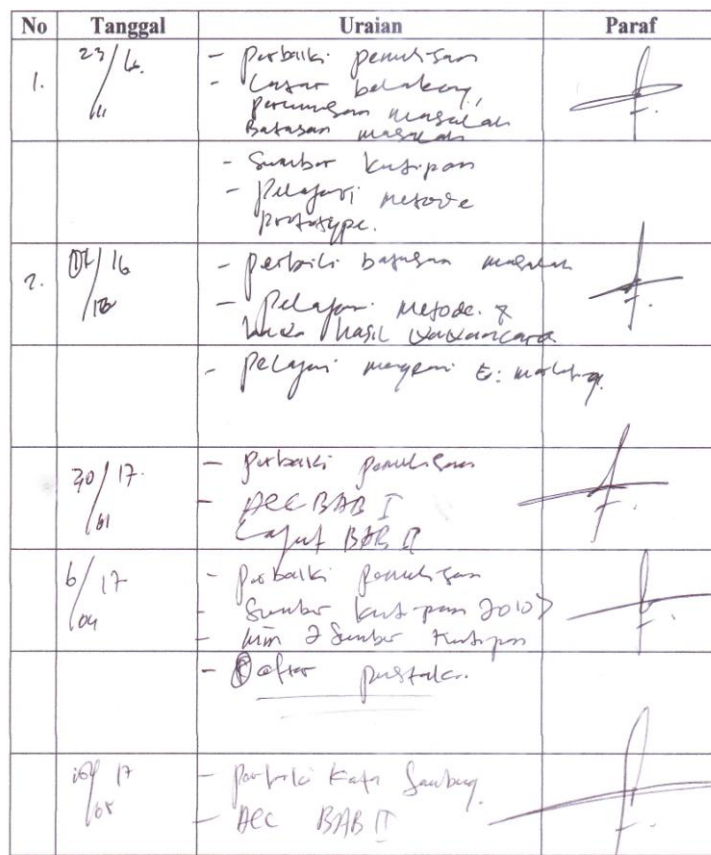 No Tanggal Uraian Paraf
1. 23/16 /11 - Perbaiki penulisan
- Latar belakang,
perumusan masalah
Batasan masalah
- Sumber kutipan
- Pelajari metode
prototype.
2. 07/16 /12 - perbaiki batasan masalah
- Pelajari metode. &
hasil wawancara
- pelajari mengenai E-marketing.
30/17 /01 - perbaiki penulisan
- ACC BAB I
Lanjut BAB II
6/17 /04 - Perbaiki penulisan
- Sumber kutipan 2010>
- min 2 Sumber kutipan
- Daftar pustaka.
17 /05 - perbaiki Kata Sambung.
- ACC BAB II